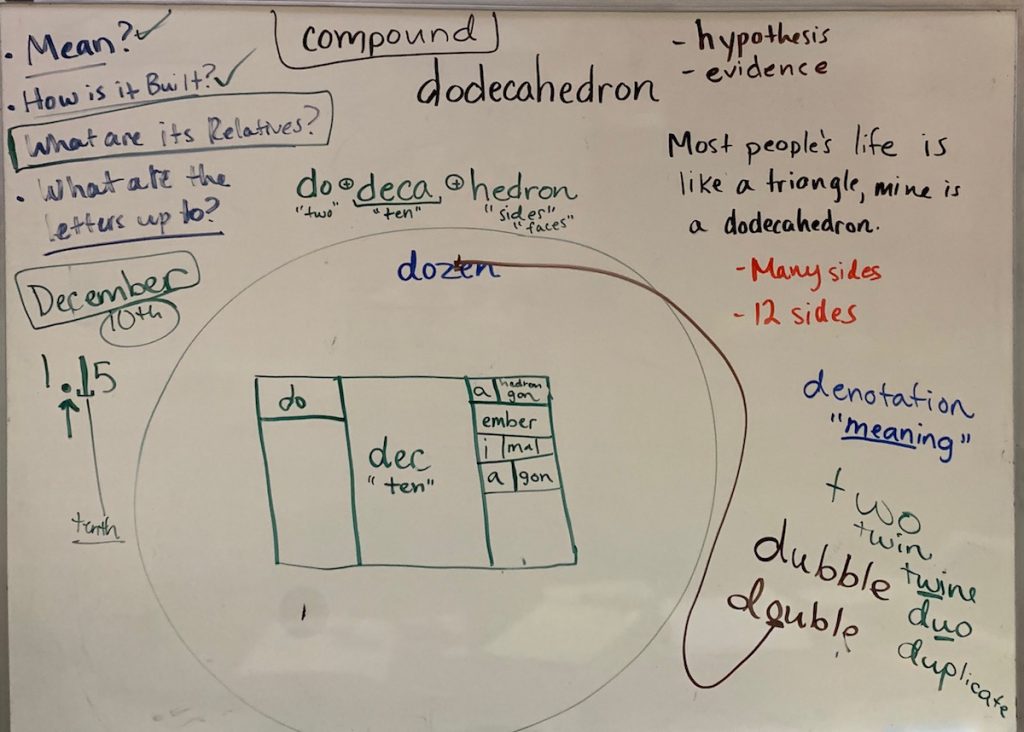 • Mean? ✓
• How is it Built? ✓
What are its Relatives?
• What are the
letters up to?
compound
dodecahedron
- hypothesis
- evidence
do ⊕ deca ⊕ hedron
"two" "ten" "sides"
"faces"
Most people's life is
like a triangle, mine is
a dodecahedron.
- Many sides
- 12 sides
December
10th
1.15
tenth
dozen
do
dec
"ten"
a hedron
gon
ember
i mal
a gon
denotation
"meaning"
two
twin
twine
duo
duplicate
dubble
double